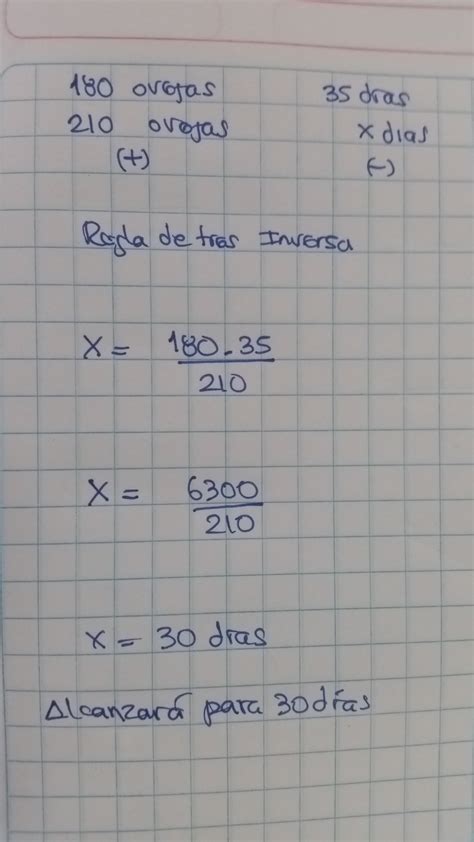 180 ovejas 35 dias
210 ovejas x dias
(+) (-)
Regla de tres Inversa
X = 180 . 35
210
X = 6300
210
X = 30 dias
Alcanzará para 30 días